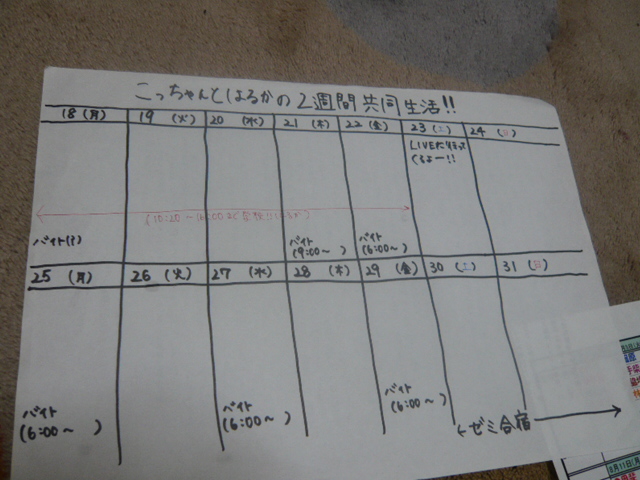 こっちゃんとはるかの2週間共同生活!!
18(月) 19(火) 20(水) 21(木) 22(金) 23(土) 24(日)
LIVEに
くるよー!!
(10:20~16:00まで
バイト(?) バイト バイト
(9:00~ ) (6:00~ )
25(月) 26(火) 27(水) 28(木) 29(金) 30(土) 31(日)
バイト バイト バイト
(6:00~ ) (6:00~ ) (6:00~ )
←ゼミ合宿→
8月11日(月)